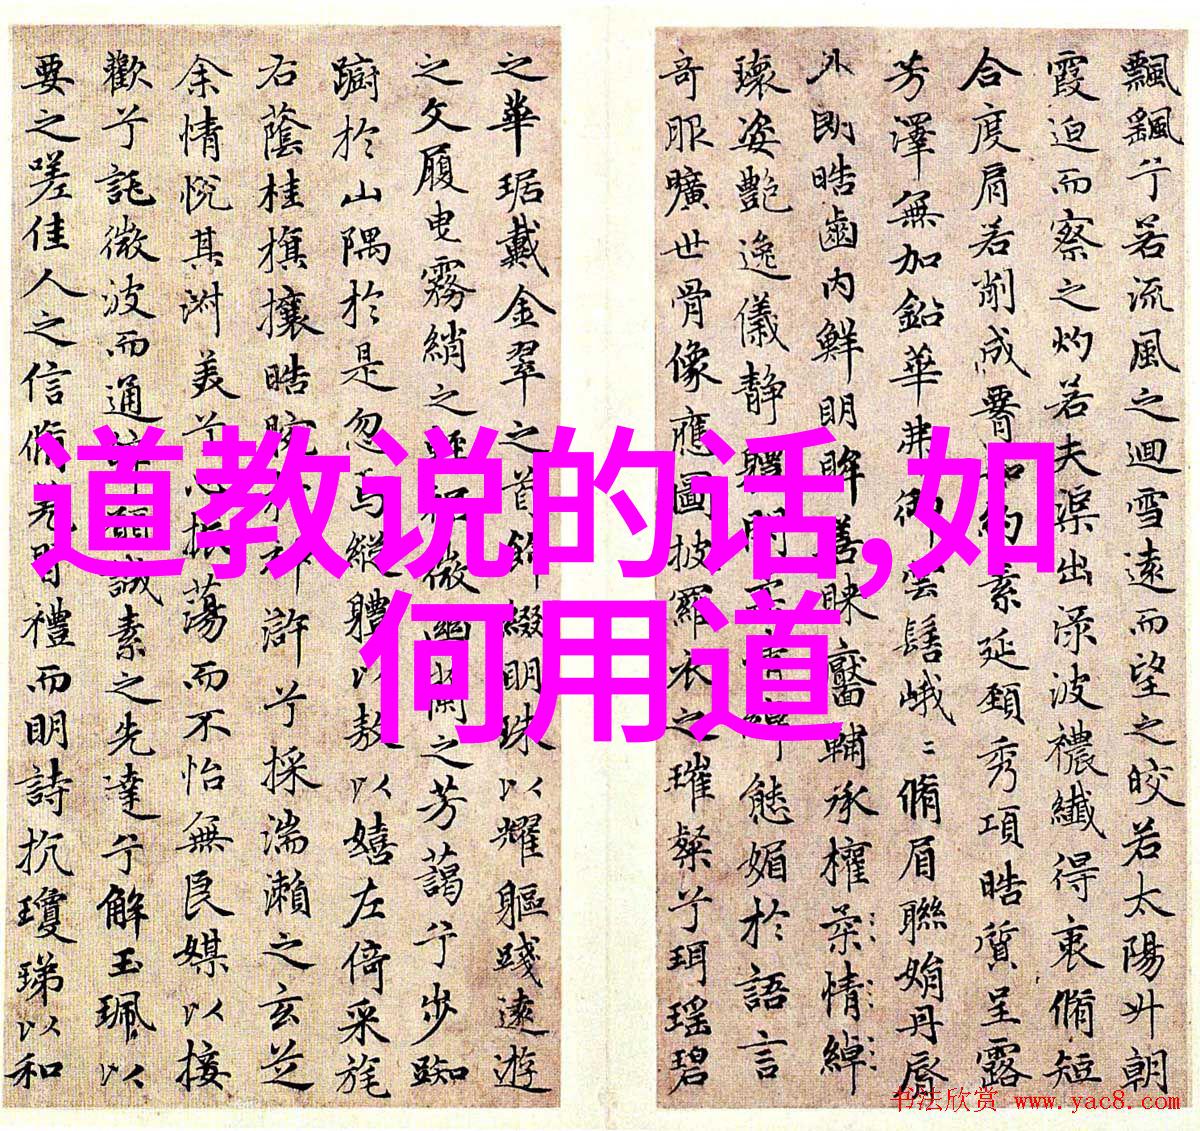 飄飖兮若流風之迴雪遠而望之皎若太陽升朝
霞迫而察之灼若夫渠出淥波襛纖得衷脩短
合度肩若削成𦝫如約素延頚秀項皓質呈露
芳澤無加鉛華弗御雲髻峨〻脩眉聯娟丹脣
外朗皓齒内鮮明眸善睞靨輔承權柔情綽
瓌姿艶逸儀静體閑柔情綽態媚於語言
奇服曠世骨像應圖披羅衣之璀粲兮珥瑶碧
之華琚戴金翠之首飾綴明珠以耀軀踐遠遊
之文履曳霧綃之輕裾微幽蘭之芳藹兮步踟
蹰於山隅於是忽焉縱體以遨以嬉左倚采旄
右蔭桂旗攘皓腕於神滸兮採湍瀨之玄芝
余情悅其淑美兮心振蕩而不怡無良媒以接
歡兮託微波而通辭願誠素之先達兮解玉珮以
要之嗟佳人之信脩羌習禮而明詩抗瓊珶以和
道教说的话,如
何用道
书法欣赏 www.yac8.com